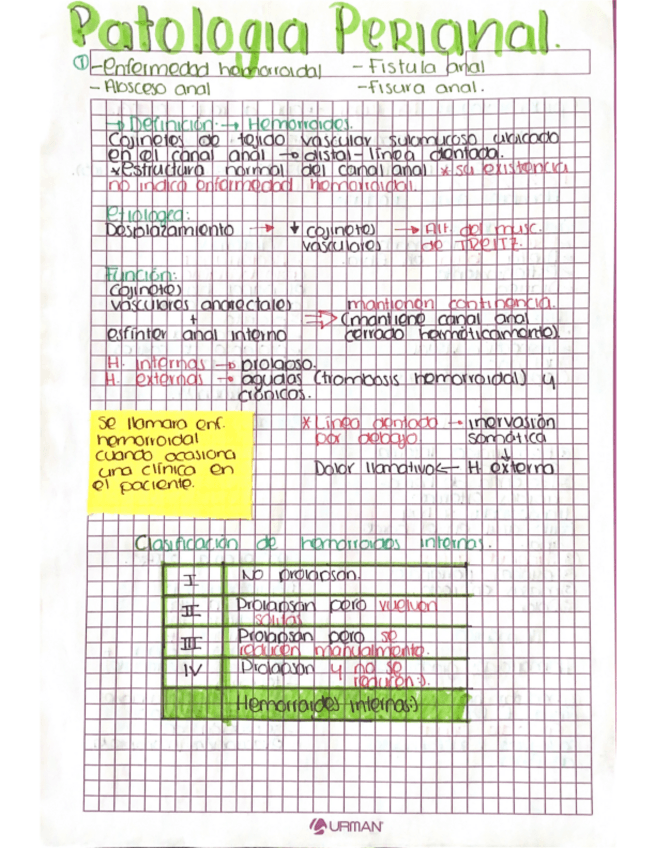 Patologia Perianal.
① -Enfermedad hemorroidal - Fistula anal
- Absceso anal -fisura anal.
→ Definición: → Hemorroides.
Cojinetes de tejido vascular submucoso ubicado
en el canal anal → distal-línea dentada.
*estructura normal del canal anal * su existencia
no indica enfermedad hemorroidal.
Etiología:
Desplazamiento → ↓ cojinetes → Alt. del musc.
vasculares de TREITZ.
Función:
Cojinetes
vasculares anorectales mantienen continencia.
+ ⇒ (mantiene canal anal
esfínter anal interno cerrado herméticamente)
H. internas → prolapso.
H. externas → agudas (trombosis hemorroidal) y
crónicos.
Se llamara enf.
hemorroidal
cuando ocasiona
una clínica en
el paciente.
* Línea dentada → inervasión
por debajo somática
↓
Dolor llamativo ← H externa
Clasificación de hemorroides internas.
I No prolapsan.
II Prolapsan pero vuelven
solitas
III Prolapsan pero se
reducen manualmente.
IV Prolapsan y no se
reducen:).
Hemorroides internas:)
URMAN